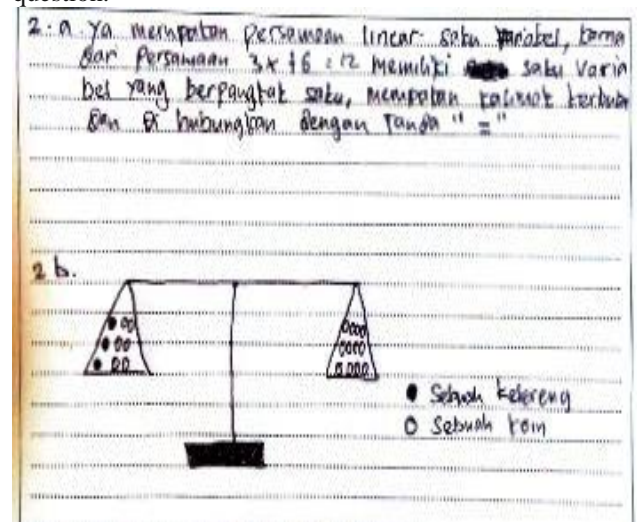 question.
2. a. Ya merupakan persamaan linear satu variabel, karna
dari Persamaan 3x + 6 = 12 memiliki satu Varia
bel yang berpangkat satu, merupakan kalimat terbuka
dan di hubungkan dengan Tanda " = "
2 b.
Sebuah kelereng
Sebuah koin